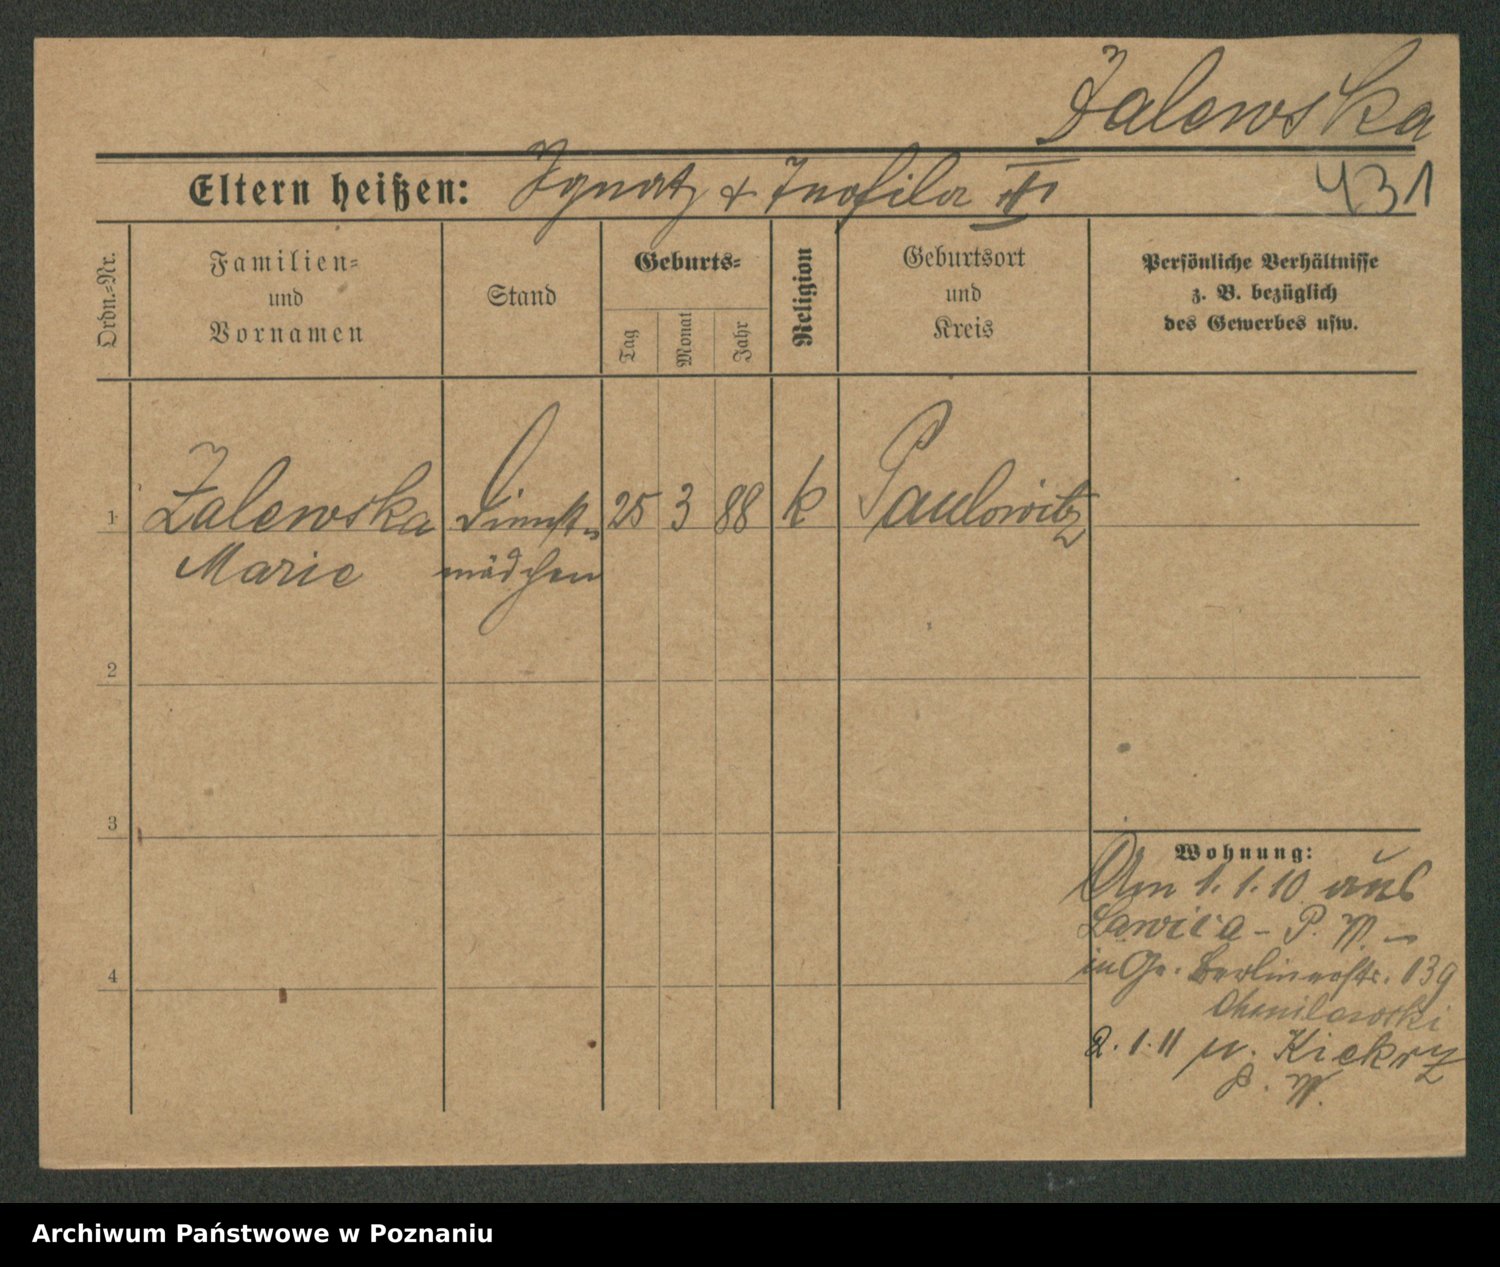 Zalewska
Eltern heißen: Ignatz & Teofila II
431
Ordn.-Nr.
Familien-
und
Vornamen
Stand
Geburts-
Tag
Monat
Jahr
Religion
Geburtsort
und
Kreis
Persönliche Verhältnisse
z. B. bezüglich
des Gewerbes usw.
1 Zalewska Dienst- 25 3 88 k Paulowitz
Marie mädchen
2
3
4
Wohnung:
Am 1.1.10 aus
Lawica - P. W. -
in Gr. Berlinerstr. 139
2.1.11 n. Kiekrz
P. W.
Archiwum Państwowe w Poznaniu